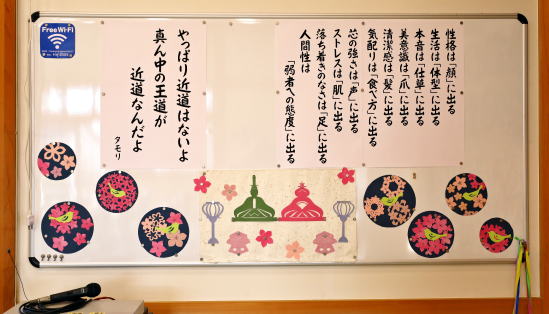 性格は「顔」に出る
生活は「体型」に出る
本音は「仕草」に出る
美意識は「爪」に出る
清潔感は「髪」に出る
気配りは「食べ方」に出る
芯の強さは「声」に出る
ストレスは「肌」に出る
落ち着きのなさは「足」に出る
人間性は
「弱者への態度」に出る
やっぱり近道はないよ
真ん中の王道が
近道なんだよ
タモリ
Free Wi-Fi